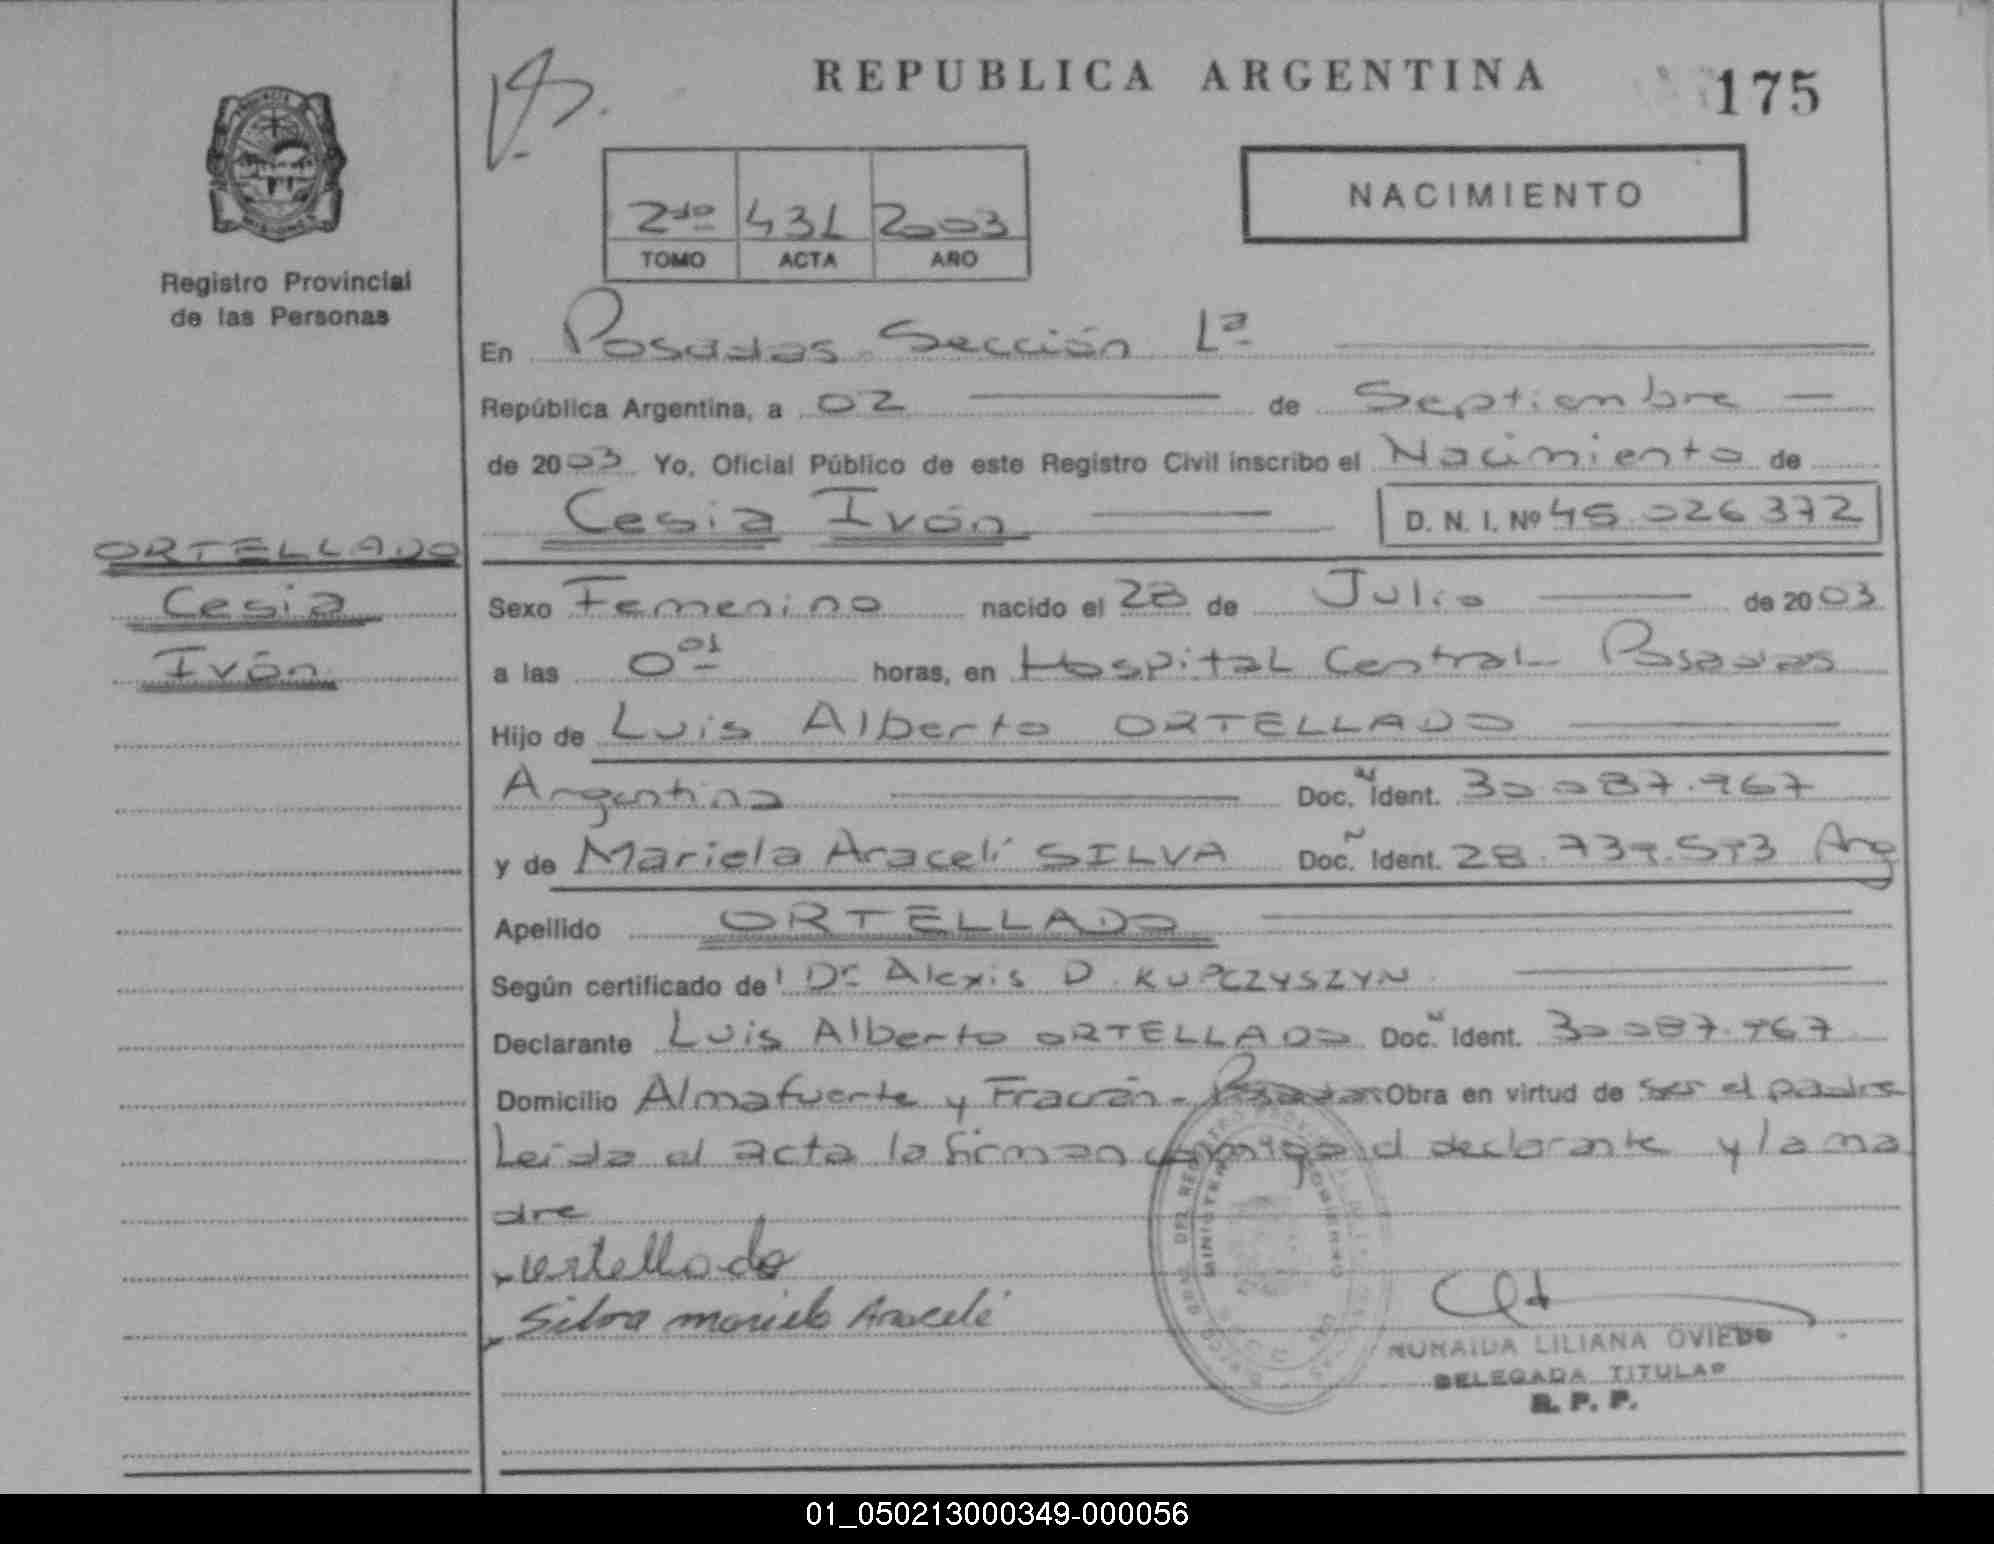 REPUBLICA ARGENTINA
175
NACIMIENTO
2do 431 2003
TOMO ACTA AÑO
Registro Provincial
de las Personas
En Posadas Sección 1ª
República Argentina, a 02 de Septiembre
de 2003 Yo, Oficial Público de este Registro Civil inscribo el Nacimiento de
Cesia Ivón D. N. I. Nº 45.026372
ORTELLADO
Cesia
Ivón
Sexo Femenino nacido el 28 de Julio de 2003
a las 0 01 horas, en Hospital Central Posadas
Hijo de Luis Alberto ORTELLADO
Argentino Doc. Ident. 30087.967
y de Mariela Araceli SILVA Doc. Ident. Arg
Apellido ORTELLADO
Según certificado de Dr Alexis D. KUPCZYSZYN
Declarante Luis Alberto ORTELLADO Doc. Ident. 30087.967
Domicilio Almafuerte y Fracrán - Posadas Obra en virtud de ser el padre
Leída el acta la firman conmigo el declarante y la ma
dre
Ortellado
Silva Mariela Araceli
LILIANA OVIEDO
DELEGADA TITULAR
R. P. P.
01_050213000349-000056